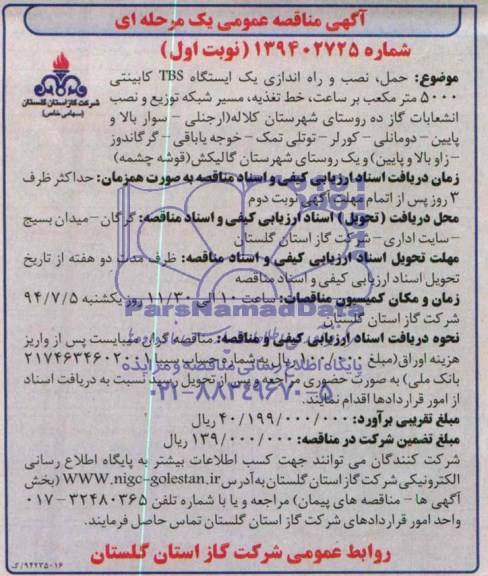 آگهی مناقصه عمومی یک مرحله ای
شماره ۱۳۹۴۰۲۷۲۵ (نوبت اول)
شرکت گاز استان گلستان
(سهامی خاص)
موضوع: حمل، نصب و راه اندازی یک ایستگاه TBS کابینتی
۵۰۰۰ متر مکعب بر ساعت، خط تغذیه، مسیر شبکه توزیع و نصب
انشعابات گاز ده روستای شهرستان کلاله(ارجنلی - سوار بالا و
پایین - دومانلی - کورلر - توتلی تمک - خوجه یاپاقی - گرگاندوز
- زاو بالا و پایین) و یک روستای شهرستان گالیکش(قوشه چشمه)
زمان دریافت اسناد ارزیابی کیفی و اسناد مناقصه به صورت همزمان: حداکثر ظرف
۳ روز پس از اتمام مهلت آگهی نوبت دوم
محل دریافت (تحویل) اسناد ارزیابی کیفی و اسناد مناقصه: گرگان - میدان بسیج
- سایت اداری - شرکت گاز استان گلستان
مهلت تحویل اسناد ارزیابی کیفی و اسناد مناقصه: ظرف مدت دو هفته از تاریخ
تحویل اسناد ارزیابی کیفی و اسناد مناقصه
زمان و مکان کمیسیون مناقصات: ساعت ۱۰ الی ۱۱/۳۰ روز یکشنبه ۹۴/۷/۵
شرکت گاز استان گلستان
ParsNamadData
نحوه دریافت اسناد ارزیابی کیفی و مناقصه: مناقصه گران میبایست پس از واریز
هزینه اوراق(مبلغ ۱۰۰/۰۰۰ ریال به شماره حساب سیبا ۲۱۷۴۶۳۴۶۰۲۰۰۱
پایگاه اطلاع رسانی مناقصه و مزایده
بانک ملی) به صورت حضوری مراجعه و پس از تحویل رسید نسبت به دریافت اسناد
۰۲۱-۸۸۳۴۹۶۷۰-۵
از امور قراردادها اقدام نمایند.
مبلغ تقریبی برآورد: ۴۰/۱۹۹/۰۰۰/۰۰۰ ریال
مبلغ تضمین شرکت در مناقصه: ۱۳۹/۰۰۰/۰۰۰ ریال
شرکت کنندگان می توانند جهت کسب اطلاعات بیشتر به پایگاه اطلاع رسانی
الکترونیکی شرکت گاز استان گلستان به آدرس WWW.nigc-golestan.ir (بخش
آگهی ها - مناقصه های پیمان) مراجعه و یا با شماره تلفن ۳۲۴۸۰۳۶۵ - ۰۱۷
واحد امور قراردادهای شرکت گاز استان گلستان تماس حاصل فرمایند.
روابط عمومی شرکت گاز استان گلستان
۹۴۲۳۵۰۱۶/ک